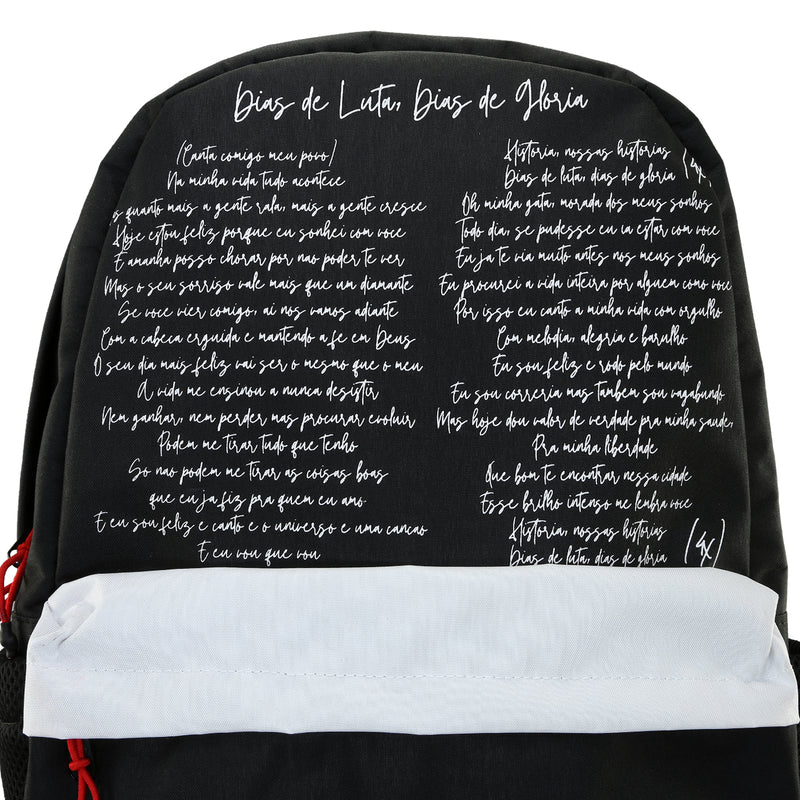 Dias de Luta, Dias de Gloria
(Canta comigo meu povo)
Na minha vida tudo acontece
s quanto mais a gente rala, mais a gente cresce
Hoje estou feliz porque eu sonhei com voce
E amanha posso chorar por nao poder te ver
Mas o seu sorriso vale mais que um diamante
Se voce vier comigo, ai nos vamos adiante
Com a cabeca erguida e mantendo a fe em Deus
O seu dia mais feliz vai ser o mesmo que o meu
A vida me ensinou a nunca desistir
Nem ganhar, nem perder mas procurar evoluir
Podem me tirar tudo que tenho
So nao podem me tirar as coisas boas
que eu ja fiz pra quem eu amo
E eu sou feliz e canto e o universo e uma cancao
E eu vou que vou
Historia, nossas historias
Dias de luta, dias de gloria (4x)
Oh minha gata, morada dos meus sonhos
Todo dia, se pudesse eu ia estar com voce
Eu ja te via muito antes nos meus sonhos
Eu procurei a vida inteira por alguem como voce
Por isso eu canto a minha vida com orgulho
Com melodia, alegria e barulho
Eu sou feliz e rodo pelo mundo
Eu sou correria mas tambem sou vagabundo
Mas hoje dou valor de verdade pra minha saude,
Pra minha liberdade
Que bom te encontrar nessa cidade
Esse brilho intenso me lembra voce
Historia, nossas historias
Dias de luta, dias de gloria (4x)